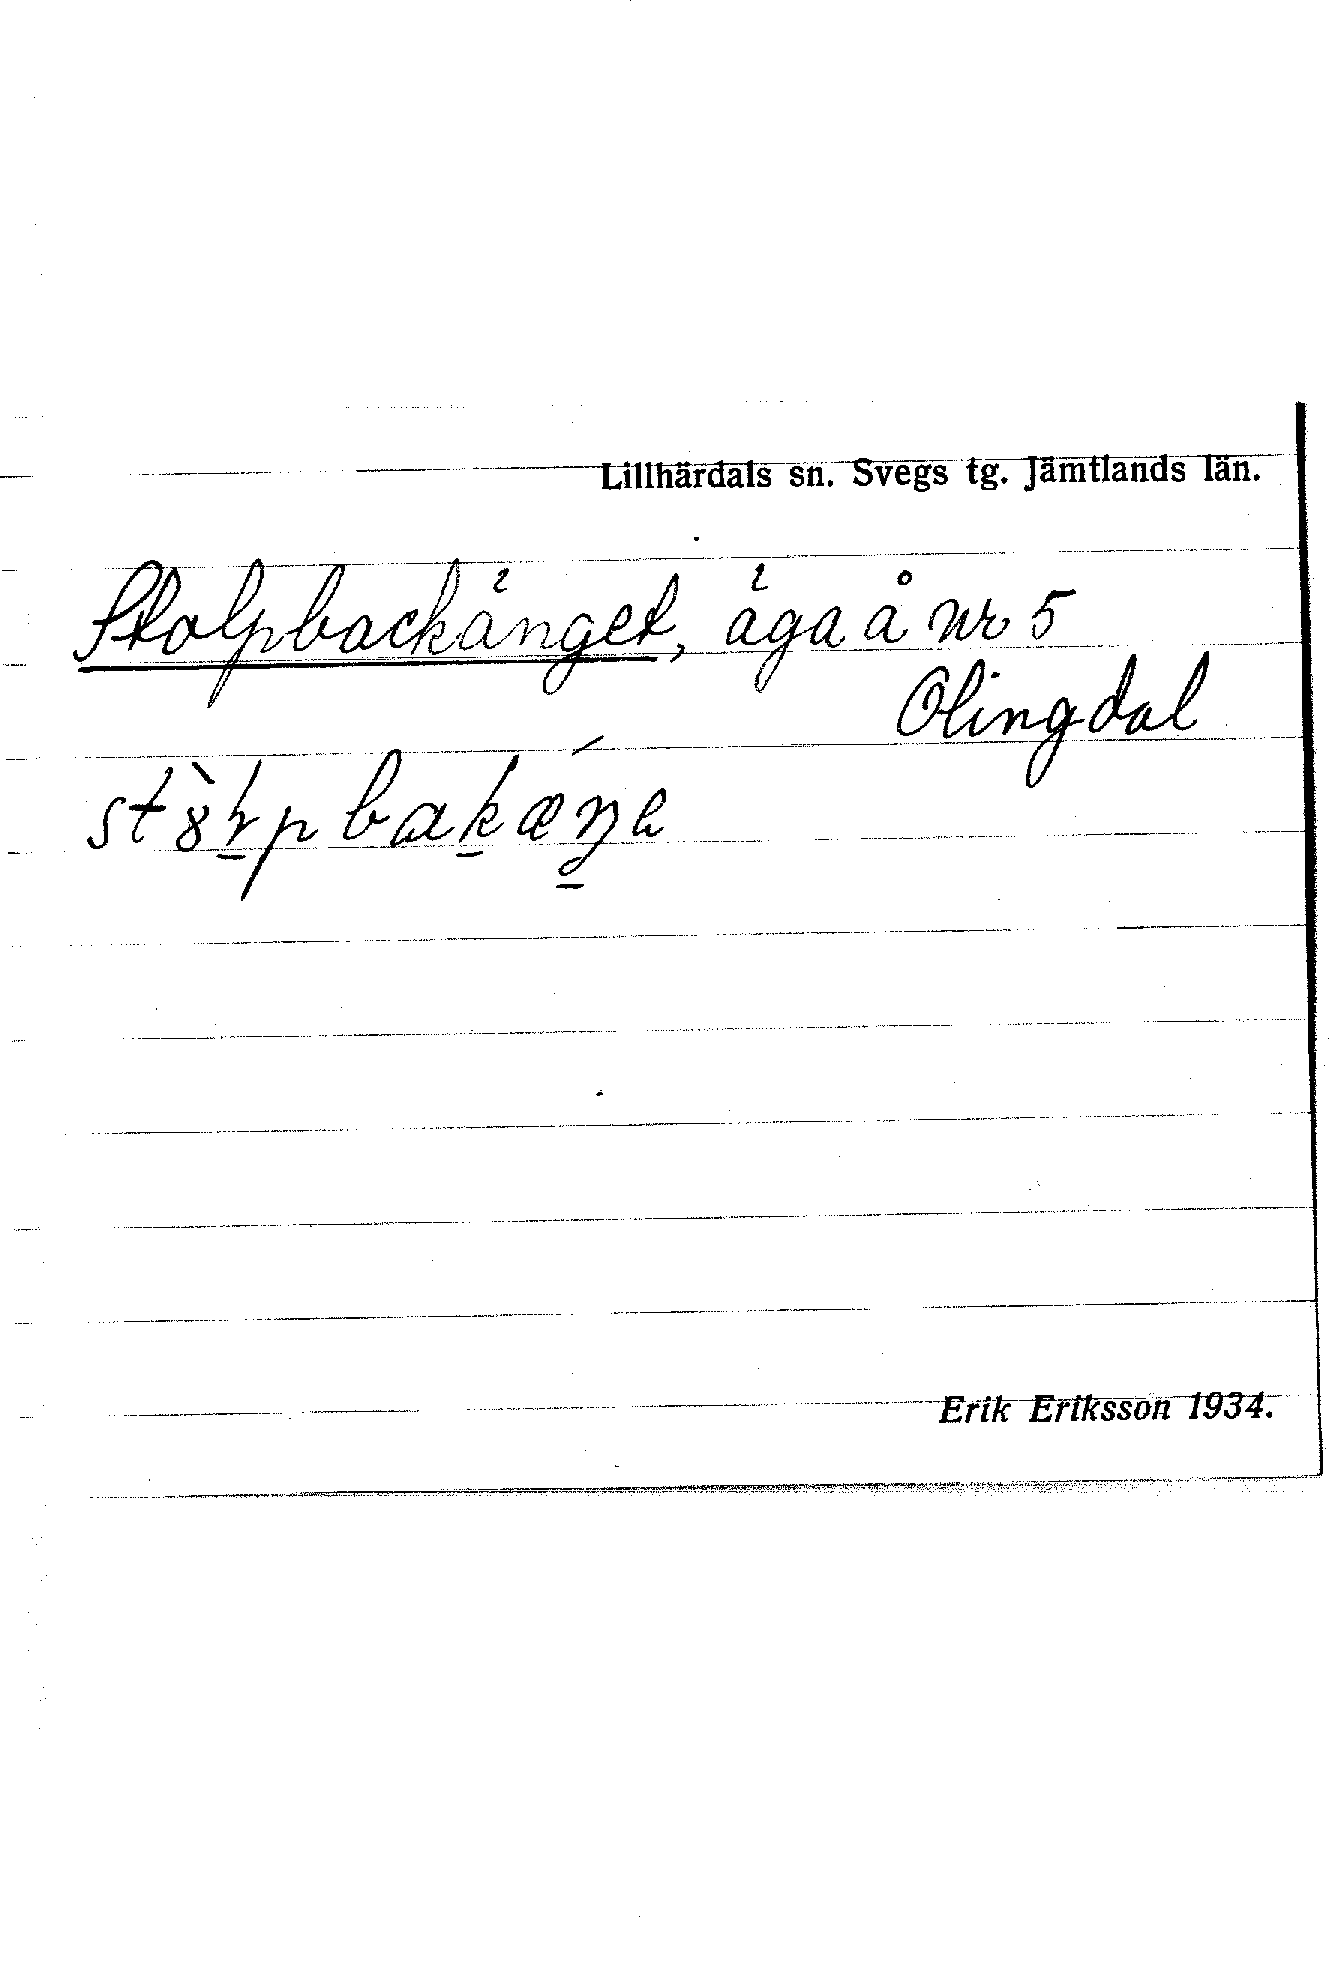 Lillhärdals sn. Svegs tg. Jämtlands län.
Stolpbackänget, äga å nr 5
Olingdal
Erik Eriksson 1934.